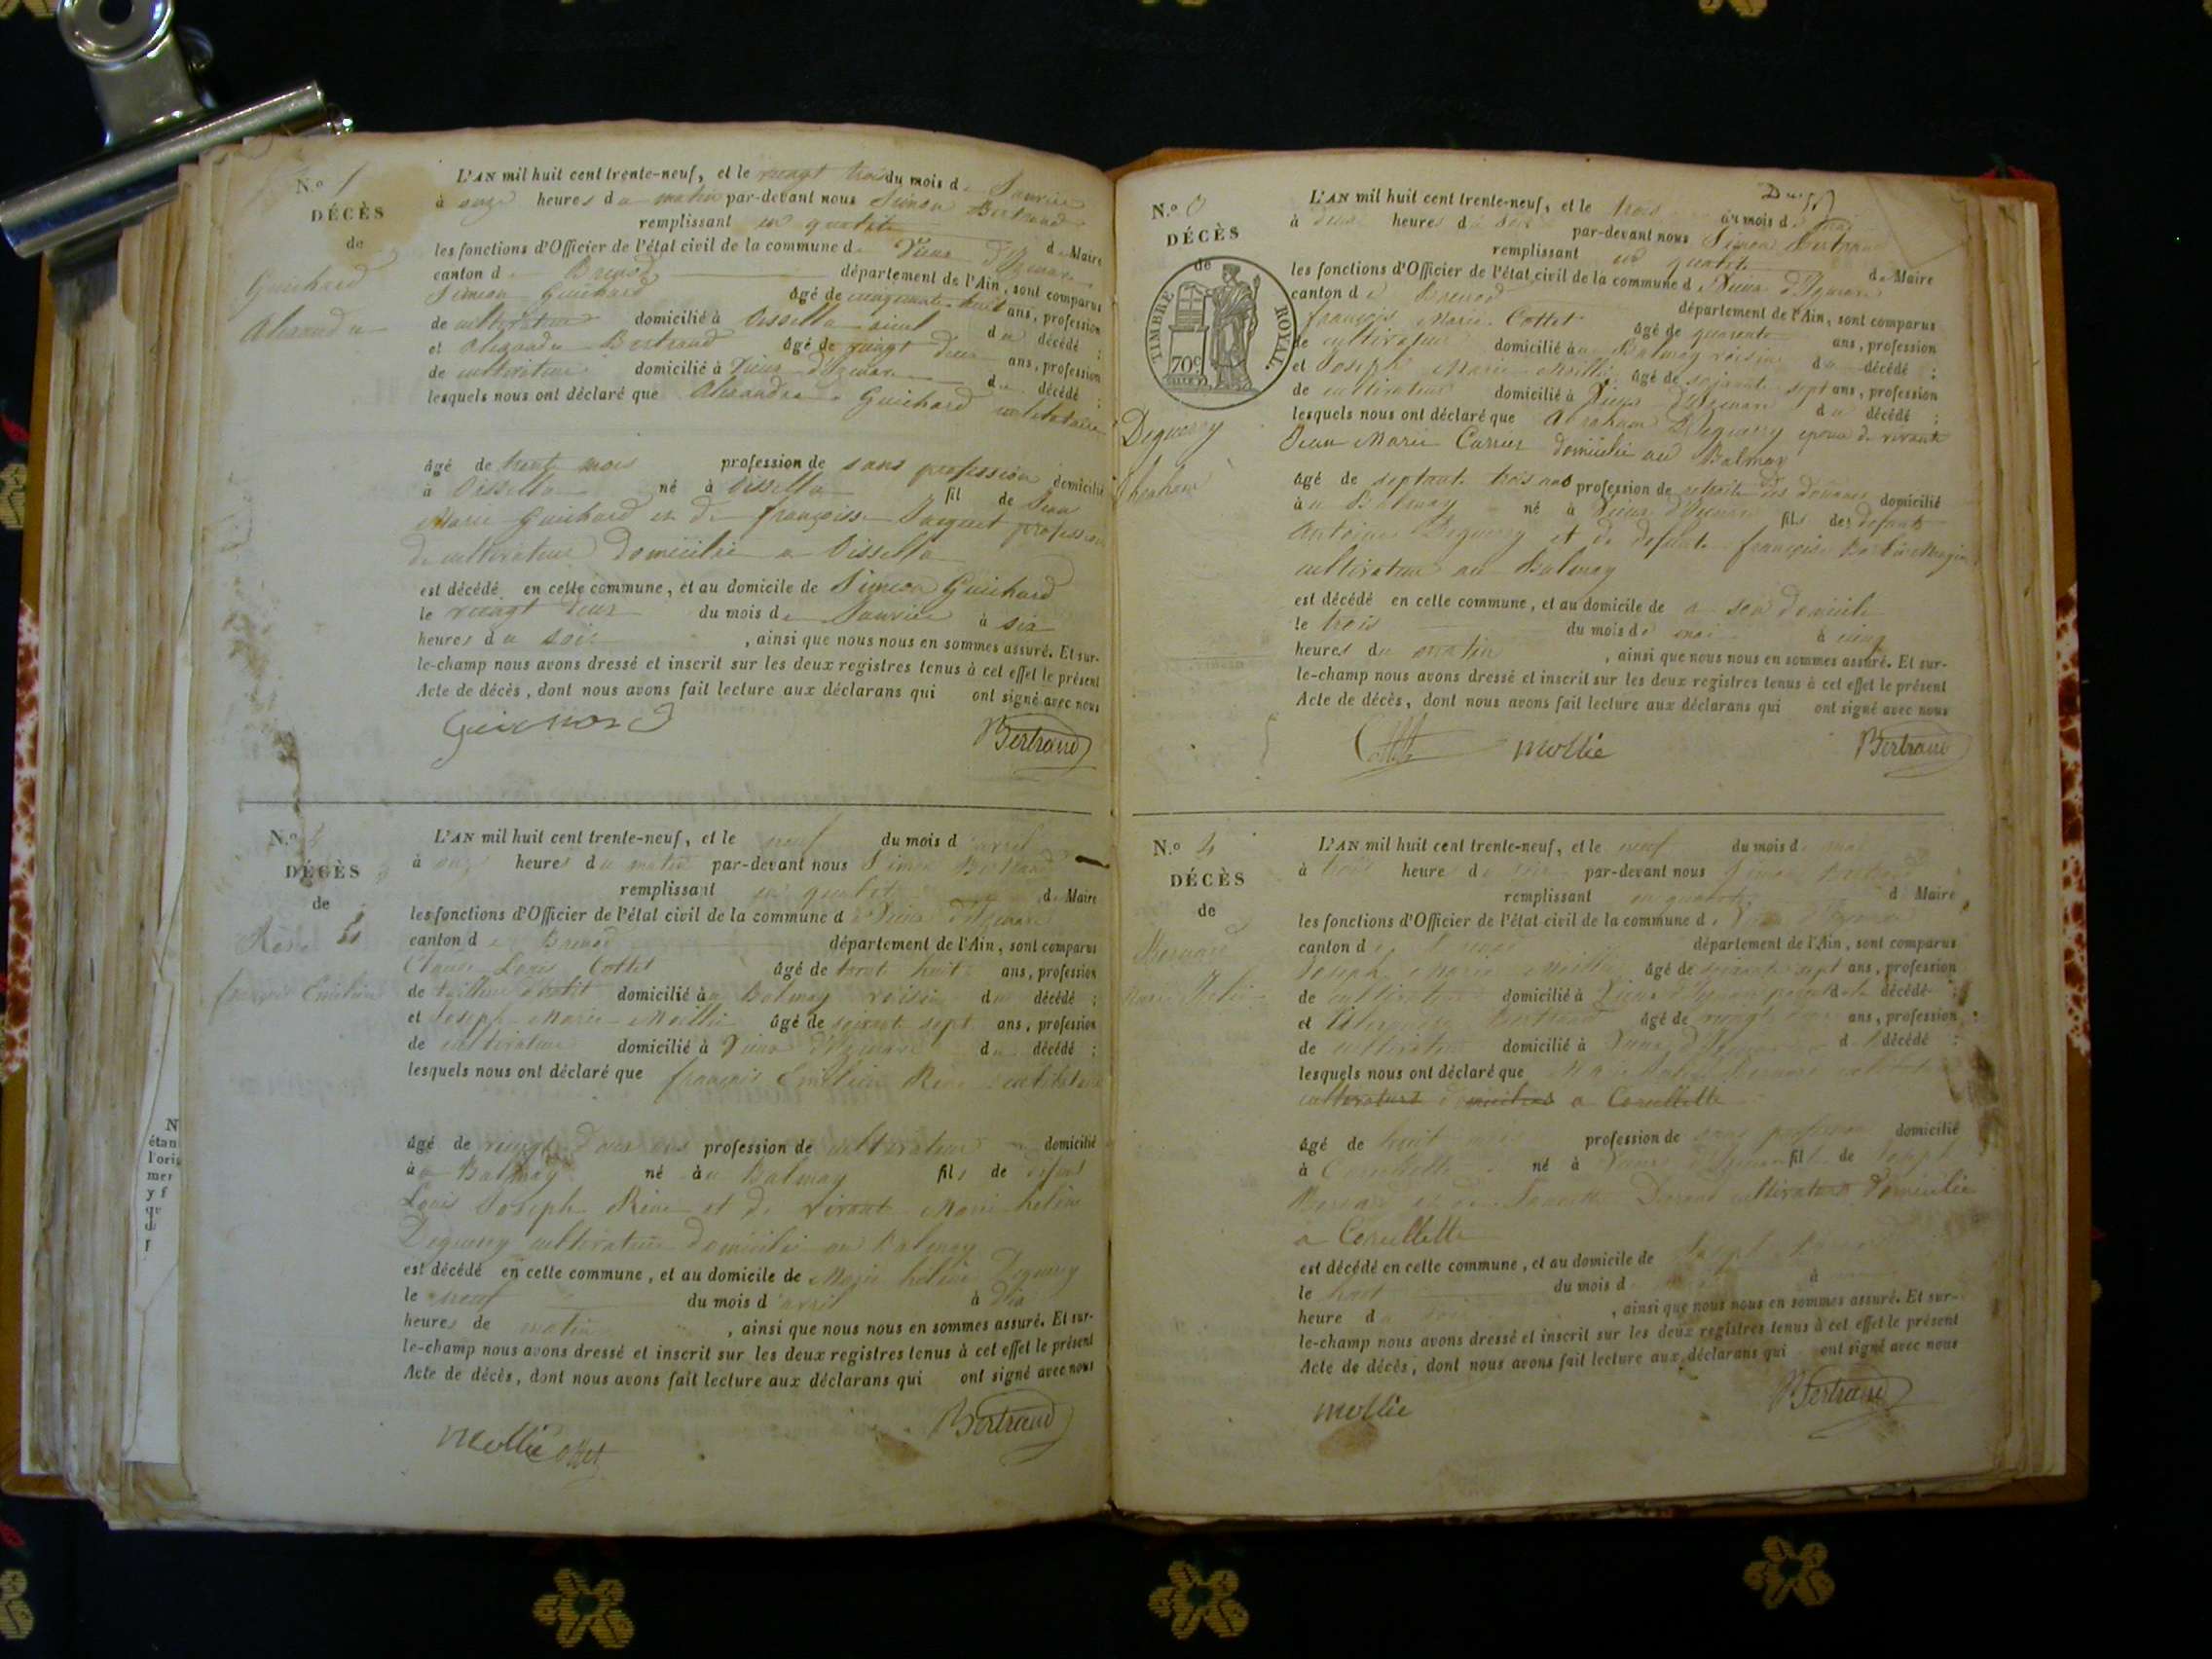 N.o 1
DÉCÈS
de
Guichard
Alexandre
L'AN mil huit cent trente-neuf, et le vingt trois du mois de Janvier
à onze heures du matin par-devant nous Siméon Bertrand
remplissant en qualité de Maire
les fonctions d'Officier de l'état civil de la commune de Vieux d'Izenave
canton de Brenod département de l'Ain, sont comparus
Siméon Guichard âgé de cinquante-huit ans, profession
de cultivateur domicilié à Oissella aieul du décédé ;
et Alexandre Bertrand âgé de vingt deux ans, profession
de cultivateur domicilié à Vieux d'Izenave du décédé ;
lesquels nous ont déclaré que Alexandre Guichard
âgé de trente mois profession de sans profession domicilié
à Oissella né à Oissella fil de Jean
Marie Guichard et de françoise Jacquet profession
de cultivateur domicilié a Oissella
est décédé en cette commune, et au domicile de Siméon Guichard
le vingt deux du mois de Janvier à six
heures du soir , ainsi que nous nous en sommes assuré. Et sur-
le-champ nous avons dressé et inscrit sur les deux registres tenus à cet effet le présent
Acte de décès, dont nous avons fait lecture aux déclarans qui ont signé avec nous
Guichard Bertrand
N.o
DÉCÈS
de
Réné
françois Emilien
L'AN mil huit cent trente-neuf, et le neuf du mois d avril
à onze heures du matin par-devant nous Siméon Bertrand
remplissant en qualité de Maire
les fonctions d'Officier de l'état civil de la commune d Vieux d'Izenave
canton de Brenod département de l'Ain, sont comparus
Claude Louis Cottet âgé de trente huit ans, profession
de domicilié à u Balmay voisin du décédé ;
et Joseph Marie Mollie âgé de soixante sept ans, profession
de cultivateur domicilié à Vieux d'Izenave du décédé ;
lesquels nous ont déclaré que françois Emilien Réné
âgé de vingt deux ans profession de cultivateur domicilié
à u Balmay né à u Balmay fils de défunt
Louis Joseph Réné et de vivante Marie héline
Deguerry cultivateur domicilié au Balmay
est décédé en cette commune, et au domicile de Marie héline Deguerry
le neuf du mois d avril à dix
heures de matin , ainsi que nous nous en sommes assuré. Et sur-
le-champ nous avons dressé et inscrit sur les deux registres tenus à cet effet le présent
Acte de décès, dont nous avons fait lecture aux déclarans qui ont signé avec nous
Mollie Cottet Bertrand
N
étan
l'orig
mer
y f
N.o
DÉCÈS
de
TIMBRE ROYAL
70c
Deguerry
Abraham
L'AN mil huit cent trente-neuf, et le trois du mois de mai
à deux heures du soir par-devant nous Siméon Bertrand
remplissant en qualité de Maire
les fonctions d'Officier de l'état civil de la commune d Vieux d'Izenave
canton de Brenod département de l'Ain, sont comparus
françois Marie Cottet âgé de quarante ans, profession
de cultivateur domicilié à u Balmay voisin du décédé ;
et Joseph Marie Mollie âgé de soixante sept ans, profession
de cultivateur domicilié à Vieux d'Izenave du décédé ;
lesquels nous ont déclaré que Abraham Deguerry époux de vivante
Jean Marie Carrier domicilié au Balmay
âgé de septante trois ans profession de retraité des douanes domicilié
à u Balmay né à Vieux d'Izenave fils de défunt
Antoine Deguerry et de défunte françoise
cultivateur au Balmay
est décédé en cette commune, et au domicile de a son domicile
le trois du mois de mai à cinq
heures du matin , ainsi que nous nous en sommes assuré. Et sur-
le-champ nous avons dressé et inscrit sur les deux registres tenus à cet effet le présent
Acte de décès, dont nous avons fait lecture aux déclarans qui ont signé avec nous
Cottet Mollie Bertrand
N.o 4
DÉCÈS
de
L'AN mil huit cent trente-neuf, et le neuf du mois de mai
à heure du soir par-devant nous Siméon Bertrand
remplissant en qualité d Maire
les fonctions d'Officier de l'état civil de la commune d Vieux d'Izenave
canton de Brenod département de l'Ain, sont comparus
Joseph Marie Mollie âgé de soixante sept ans, profession
de cultivateur domicilié à Vieux d'Izenave d décédé ;
et Alexandre Bertrand âgé de vingt deux ans, profession
de cultivateur domicilié à Vieux d'Izenave d décédé ;
lesquels nous ont déclaré que
cultivateurs domiciliés a Corcellette
âgé de huit mois profession de sans profession domicilié
à Corcellette né à Vieux d'Izenave fil de Joseph
et de cultivateurs domicilié
a Corcellette
est décédé en cette commune, et au domicile de Joseph
le huit du mois d à
heure d soir , ainsi que nous nous en sommes assuré. Et sur-
le-champ nous avons dressé et inscrit sur les deux registres tenus à cet effet le présent
Acte de décès, dont nous avons fait lecture aux déclarans qui ont signé avec nous
Mollie Bertrand